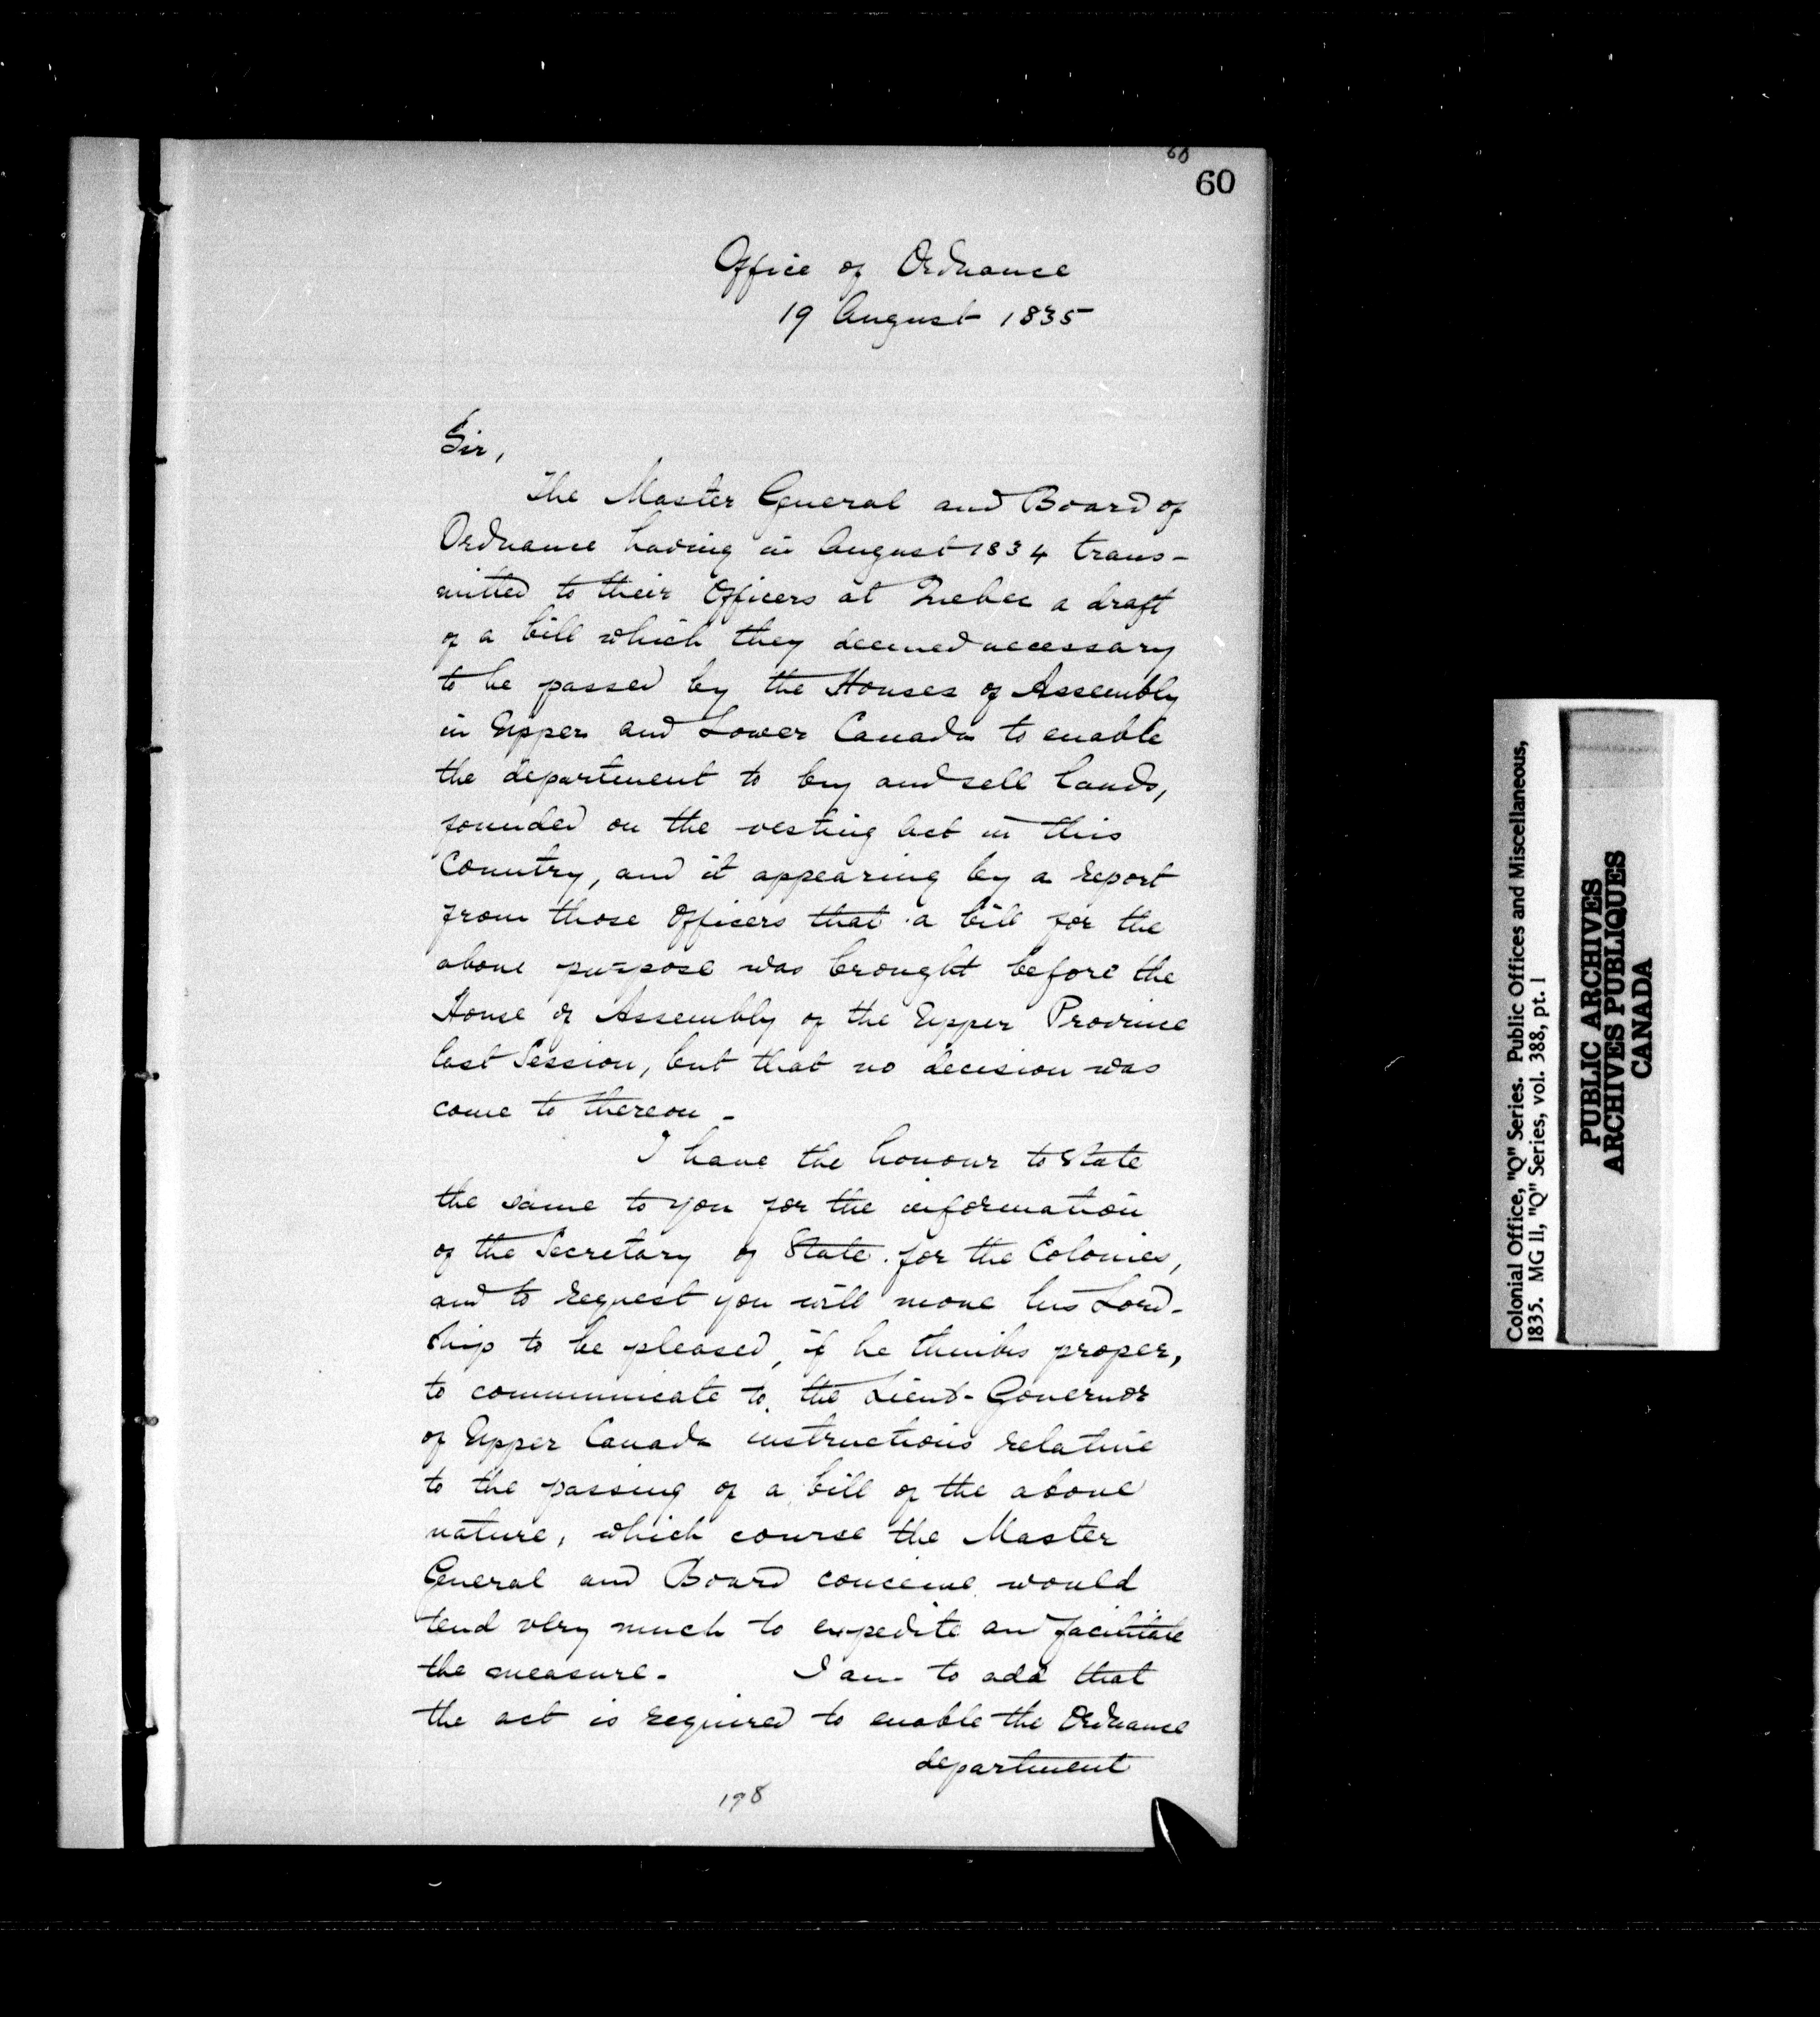 60
60
Office of Ordnance
19 August 1835
Sir,
The Master General and Board of
Ordnance having in August 1834 trans-
mitted to their Officers at Quebec a draft
of a bill which they deemed necessary
to be passed by the Houses of Assembly
in Upper and Lower Canada to enable
the department to buy and sell lands,
founded on the vesting act in this
Country, and it appearing by a report
from those Officers that a bill for the
above purpose was brought before the
House of Assembly of the Upper Province
last Session, but that no decision was
come to thereon -
I have the honour to state
the same to you for the information
of the Secretary of State for the Colonies,
and to request you will move his Lord-
ship to be pleased, if he thinks proper,
to communicate to the Lieut-Governor
of Upper Canada instructions relative
to the passing of a bill of the above
nature, which course the Master
General and Board conceive would
tend very much to expedite and facilitate
the measure. I am to add that
the act is required to enable the Ordnance
department
198
Colonial Office, "Q" Series. Public Offices and Miscellaneous,
1835. MG 11, "Q" Series, vol. 388, pt. 1
PUBLIC ARCHIVES
ARCHIVES PUBLIQUES
CANADA